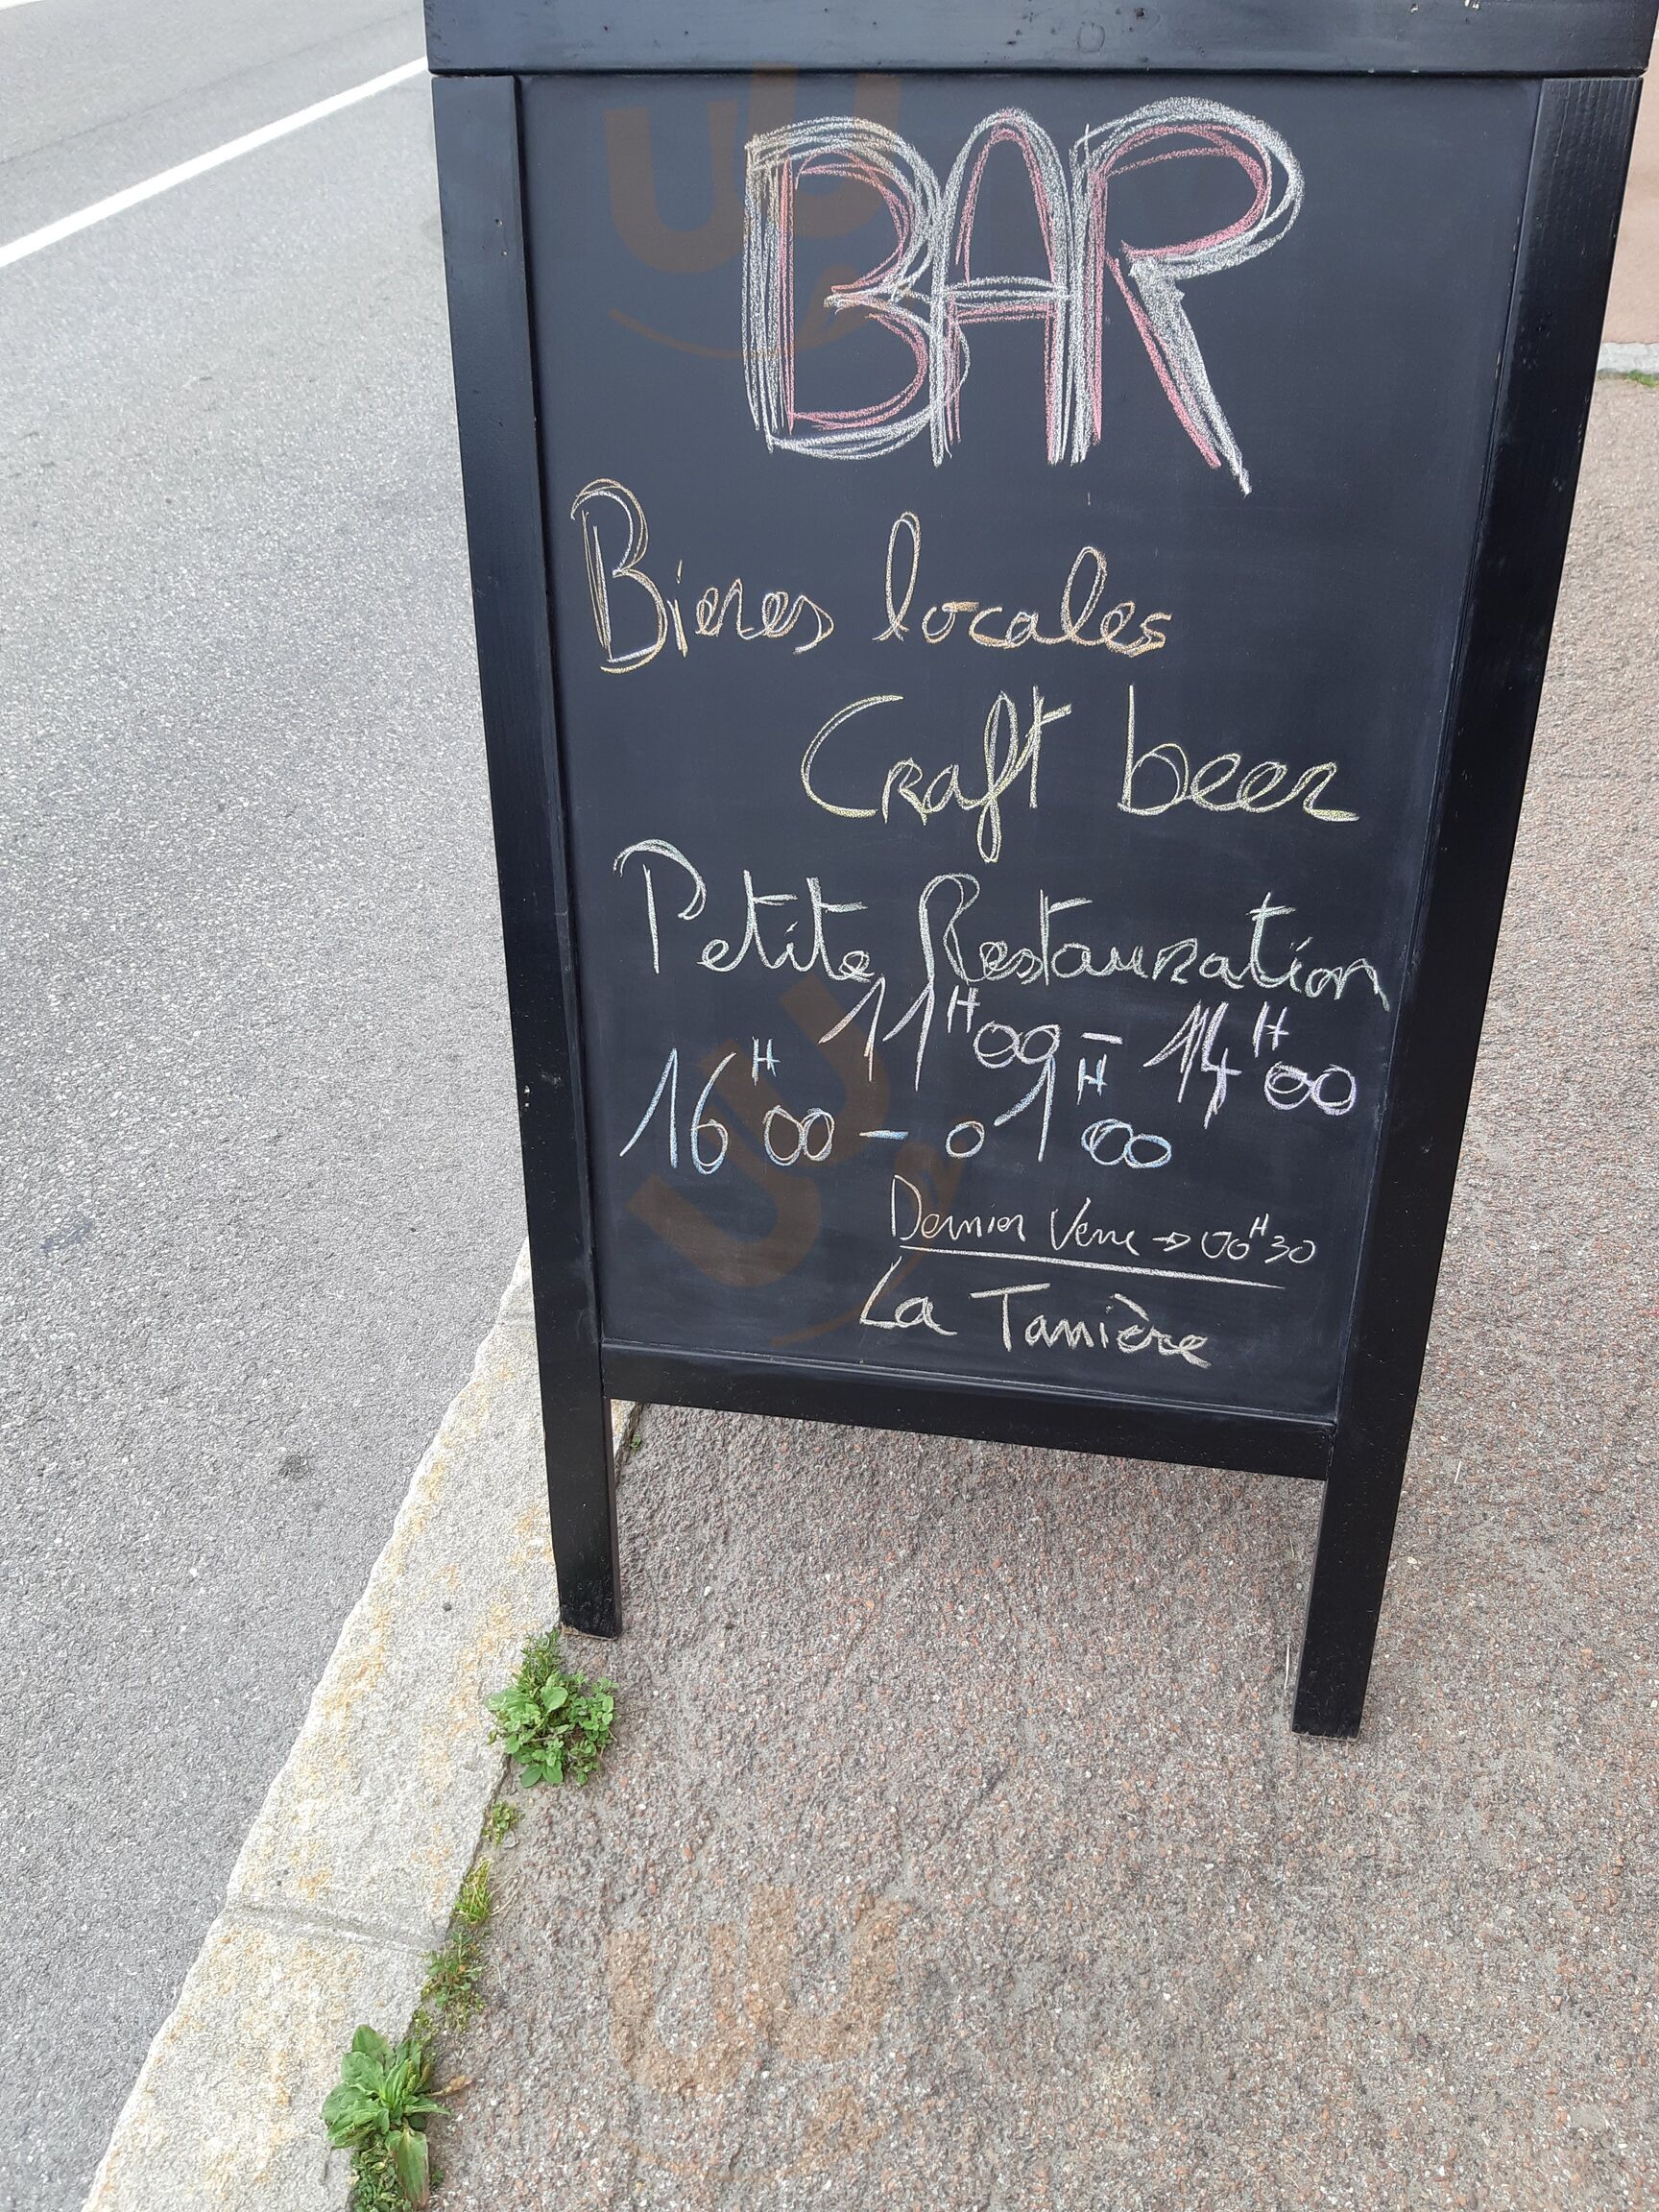 BAR
Bieres locales
Craft beer
Petite Restauration
11H00 - 14H00
16H00 - 01H00
Dernier Verre → 00H30
La Tanière